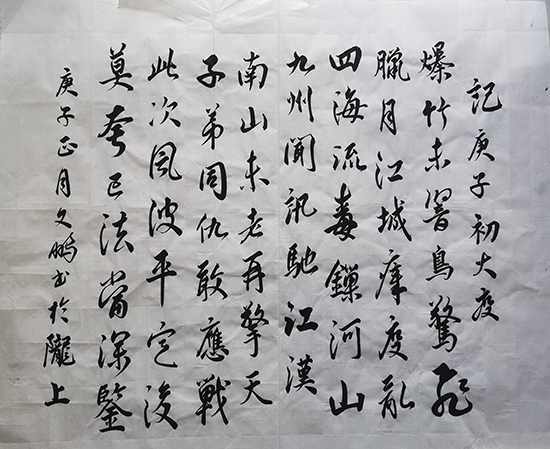 記庚子初大疫
爆竹未響鳥驚飛
臘月江城瘴疫亂
四海流毒鏁河山
九州聞訊馳江漢
南山未老再擎天
子弟同仇敢應戰
此次風波平定後
莫夸己法當深鑒
庚子正月文鵬书於隴上